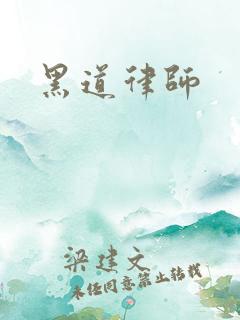 黑道律師
梁建文
未任同意禁止转载